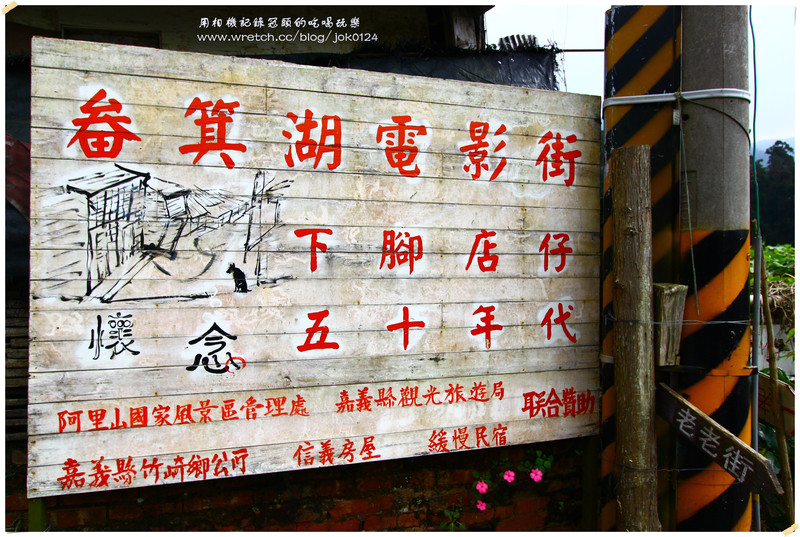 用相機記錄忽頤的吃喝玩樂
www.wretch.cc/blog/jok0124
畚箕湖電影街
下腳店仔
懷念五十年代
阿里山國家風景區管理處 嘉義縣觀光旅遊局 联合贊助
嘉義縣竹崎鄉公所 信義房屋 緩慢民宿
老老街